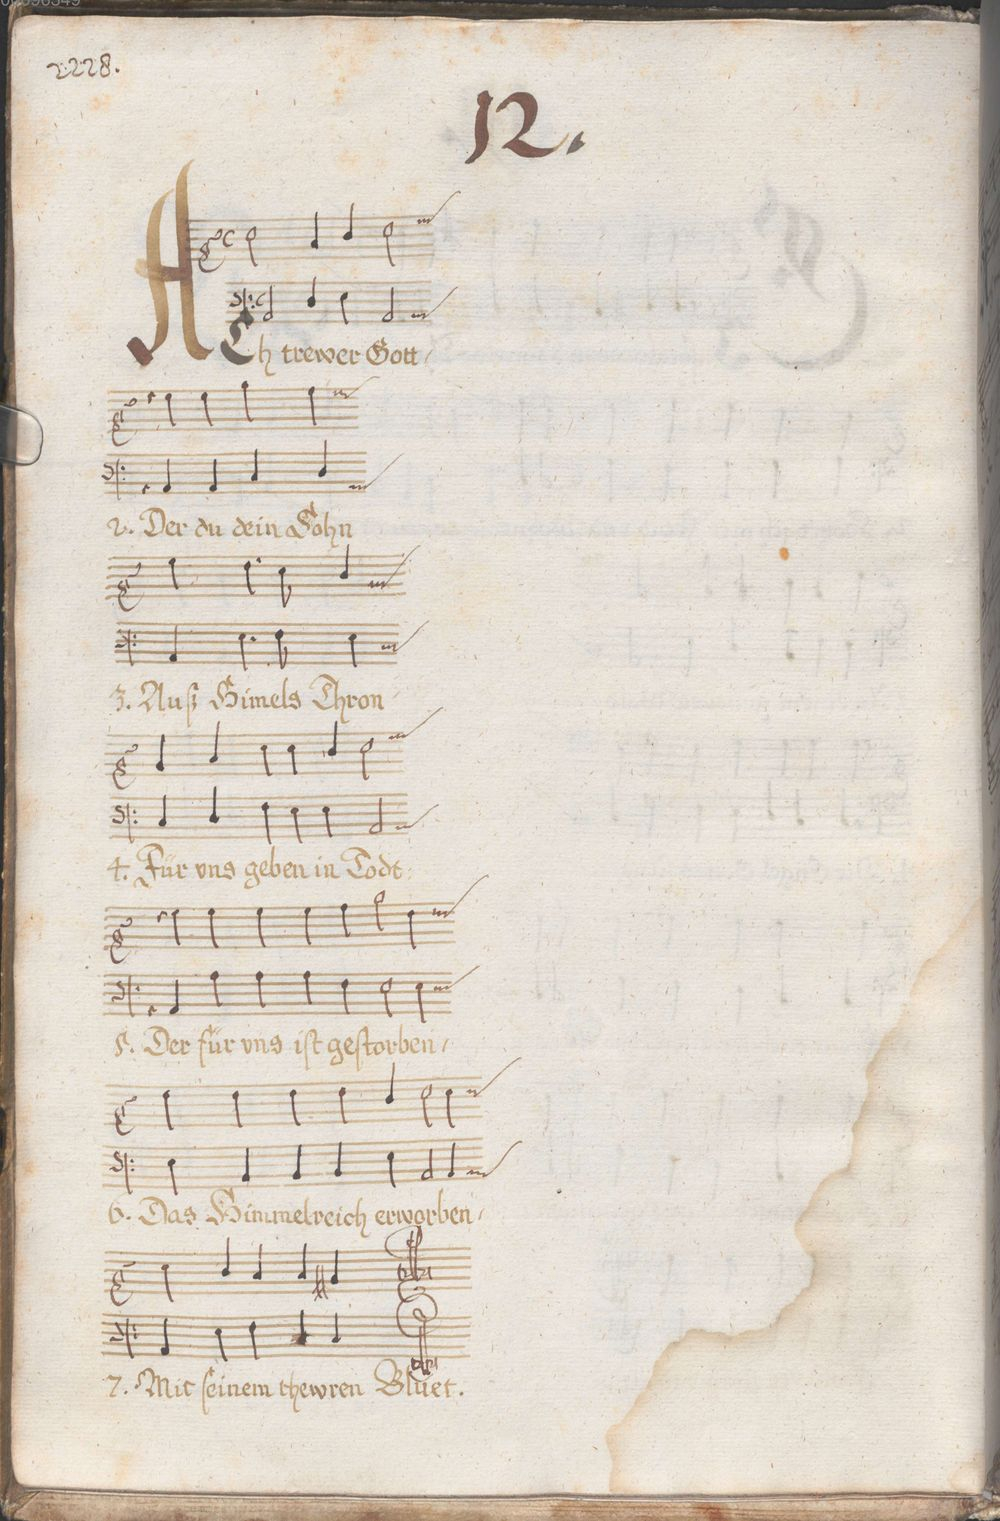 2228.
12.
ACh trewer Gott /
2. Der du dein Sohn
3. Auß Himels Thron
4. Für vns geben in Todt:
5. Der für vns ist gestorben /
6. Das Himmelreich erworben /
7. Mit seinem thewren Bluet.